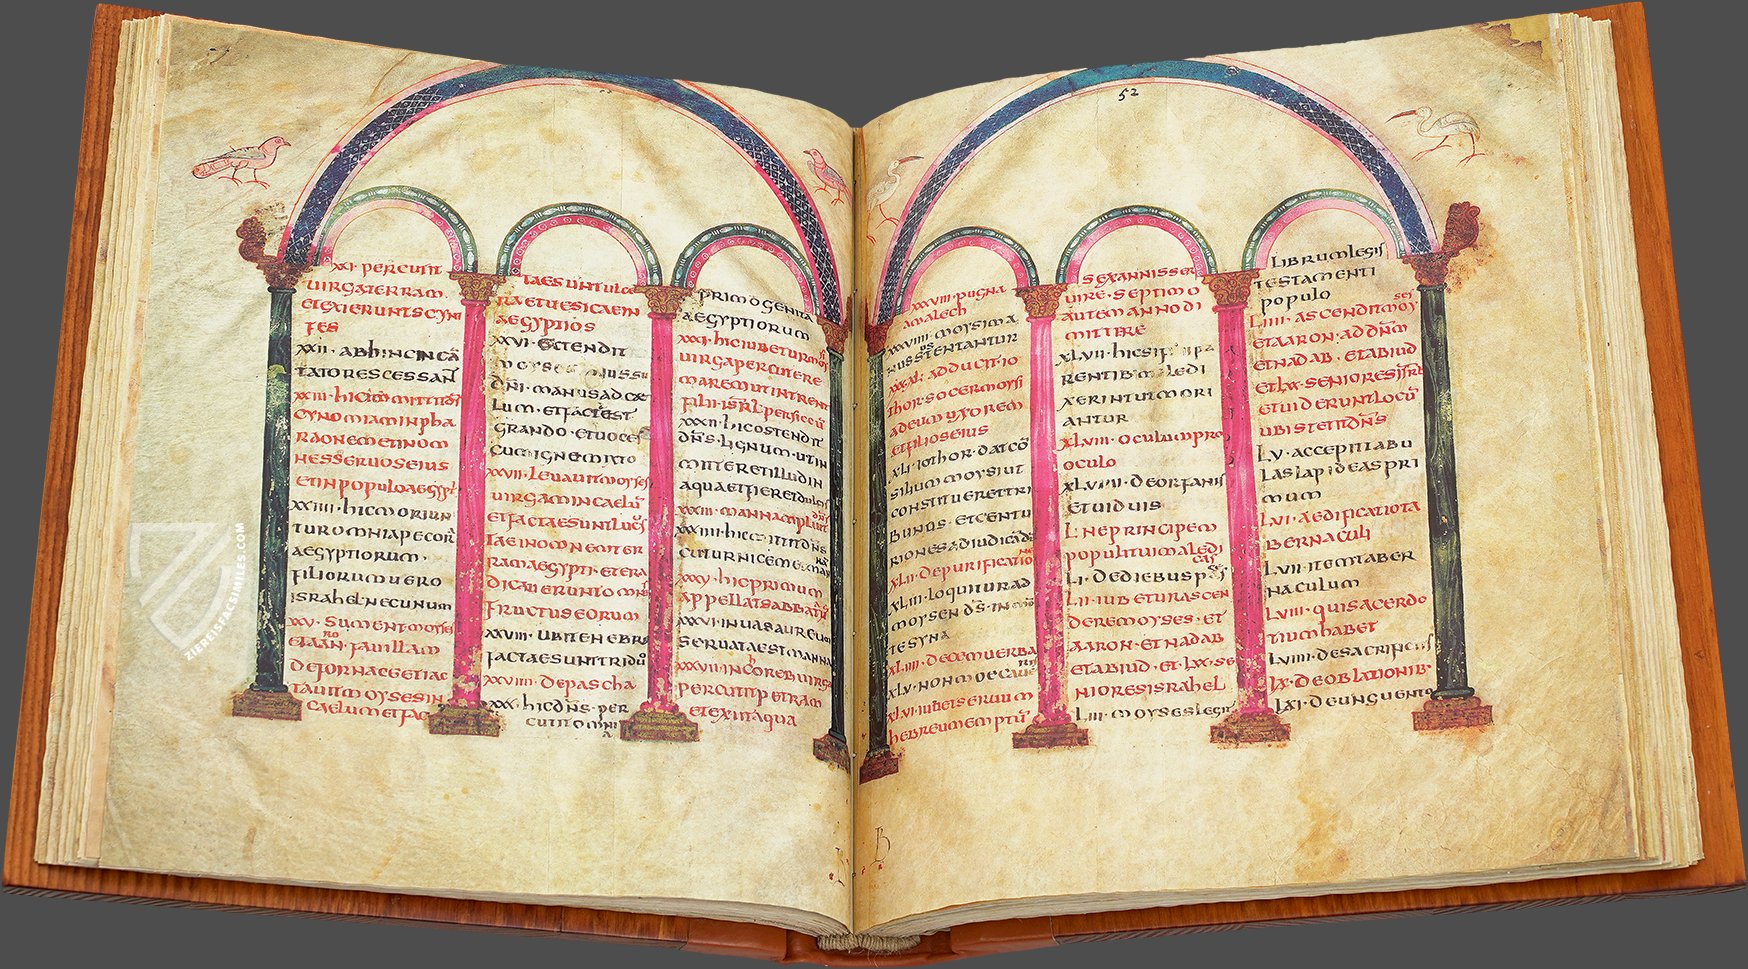 52
XXI · PERCUTIT
UIRGA TERRAM ·
ET EXIERUNT SCYNI
FES
XXII · ABHINC INCĀ
TATORES CESSAN̄T
XXIII · HIC MITTIT
CYNOMIAM IN PHA
RAONEM ET IN OM
NES SERUOS EIUS
ET IN POPULO AEGYPT
XXIIII · HIC MORIUN
TUR OMNIA PECOR
AEGYPTIORUM ·
FILIORUM UERO
ISRAHEL NEC UNUM
XXV · SUMENT MOYSE
ET AARON · FAUILLAM
DE FORNACE ET IAC
TAUIT MOYSES IN
CAELUM ET FAC
TAE SUNT ULCE
RA ET UESICAE IN
AEGYPTIOS
XXVI · EXTENDIT
MOYSES IUSSU
DN̄I · MANUS AD CAE
LUM · ET FACT EST
GRANDO · ET UOCES
CUM IGNE MIXTO
XXVII · LEUAUIT MOYSES
UIRGAM IN CAELŪ
ET FACTAE SUNT LUCUS
TAE IN OMNEM TER
RAM AEGYPTI · ET ERA
DICAUERUNT OMNES
FRUCTUS EORUM
XXVIII · UBI TENEBRE
FACTAE SUNT TRIDUO
XXVIIII · DE PASCHA
XXX · HIC DN̄S · PER
CUTIT OMNI
A
PRIMOGENITA
AEGYPTIORUM
XXXI · HIC IUBETUR MOYSI
UIRGA PERCUTERE
MARE M UT INTRENT
FILII · ISRL PER SICCŪ
XXXII · HIC OSTENDIT
DN̄S · LIGNUM · UT IN
MITTERET ILLUD IN
AQUA ET FIERET DULCIS
XXXIII · MANNAM PLUIT DN̄S
XXXIIII · HIC MITTIT DN̄S
COTURNICEM ET MAN
NA
XXXV · HIC PRIMUM
APPELLAT SABBATŪ
XXXVI · IN UAS AUREUM
SERUATA EST MANNA
XXXVII · IN COREB UIRGA
PERCUTIT PETRAM
ET EXIIT AQUA
XXXVIII · PUGNA
AMALECH
XXXVIIII · MOYSI MA
NUS SUSTENTANTUR
XL · ADDUCIT IO
THOR · SOCER MOYSI
AD EUM UXOREM
ET FILIOS EIUS
XLI · IOTHOR · DAT CŌ
SILIUM MOYSI UT
CONSTITUERET TRI
BUNOS · ET CENTU
RIONES AD IUDICAND
XLII · DE PURIFICATIO
NE
XLIII · LOQUITUR AD
MOYSEN DS̄ · IN MON
TE SYNA
XLIIII · DECEM UERBA
XLV · NON MOECAUE
RIS
XLVI · IUBET SERUUM
HEBREUM EMPTŪ
SEX ANNIS SER
UIRE · SEPTIMO
AUTEM ANNO DI
MITTERE
XLVII · HIC SI
RENTIB MALEDI
XERINT UT MORI
ANTUR
XLVIII · OCULUM PRO
OCULO
XLVIIII · DE ORFANIS
ET UIDUIS
L · NE PRINCIPEM
POPULI TUI MALEDI
CAS
LI · DE DIEBUS
LII · IUBETUR ASCEN
DERE MOYSES · ET
AARON · ET NADAB
ET ABIUD · ET LXX · SE
NIORES ISRAHEL
LIII · MOYSES LEGIT
LIBRUM LEGIS
TESTAMENTI
POPULO
LIIII · ASCENDIT MOY
SES
ET AARON · AD DN̄M
ET NADAB · ET ABIUD
ET LXX · SENIORES
ET UIDERUNT LOCŪ
UBI STETIT DN̄S
LV · ACCEPIT TABU
LAS LAPIDEAS PRI
MUM
LVI · AEDIFICATIO TA
BERNACULI
LVII · ITEM TABER
NACULUM
LVIII · QUI SACERDO
TIUM HABET
LVIIII · DE SACRIFICIIS
LX · DE OBLATIONIB·
LXI · DE UNGUENTO
B
ZIEREISFACSIMILES.COM